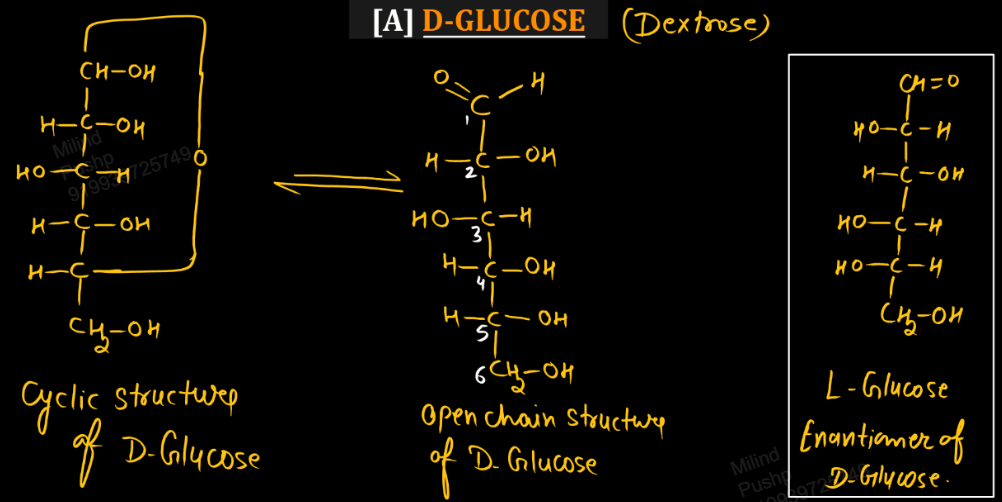 [A] D-GLUCOSE (Dextrose)
CH-OH
H-C-OH
HO-C-H
H-C-OH
H-C
CH2-OH
O
Cyclic structure
of D-Glucose
O H
C
1
H-C-OH
2
HO-C-H
3
H-C-OH
4
H-C-OH
5
6 CH2-OH
open chain structure
of D-Glucose
CH=O
HO-C-H
H-C-OH
HO-C-H
HO-C-H
CH2-OH
L-Glucose
Enantiomer of
D-Glucose.
Milind
Pushp
Milind
Pushp